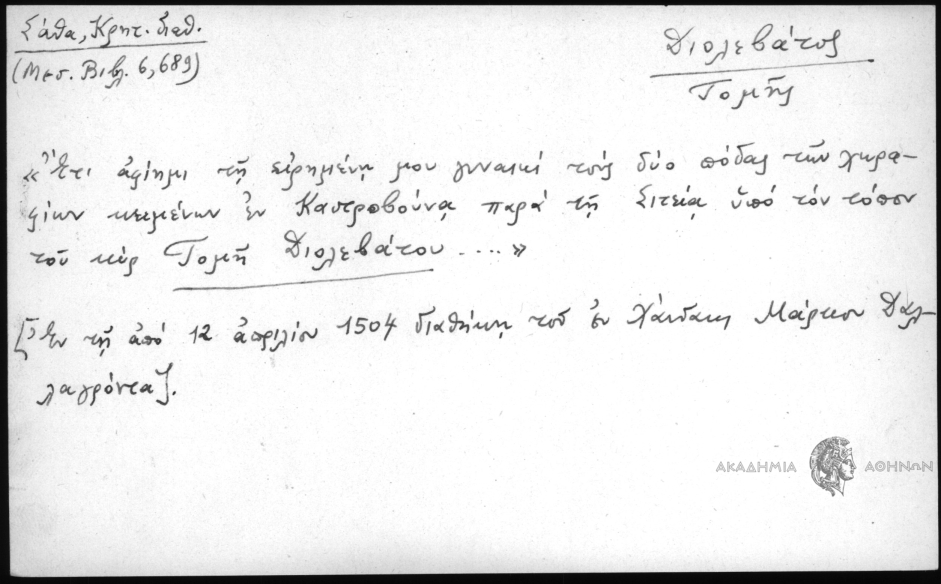 Σάθα, Κρητ. διαθ.
(Μεσ. Βιβλ. 6, 689)
Διολεβάτος
Τομῆς
«Ἔτι ἀφίημι τῇ εἰρημένῃ μου γυναικί τούς δύο πόδας τῶν χωρα-
φίων κειμένων ἐν Καστροβούνᾳ παρά τῇ Σιτείᾳ ὑπό τόν τόπον
τοῦ κύρ Τομῆ Διολεβάτου ....»
[Ἐν τῇ ἀπό 12 ἀπριλίου 1504 διαθήκῃ τοῦ ἐν Χάνδακι Μάρκου Δαλ-
λαγρόντα].
ΑΚΑΔΗΜΙΑ ΑΘΗΝΩΝ